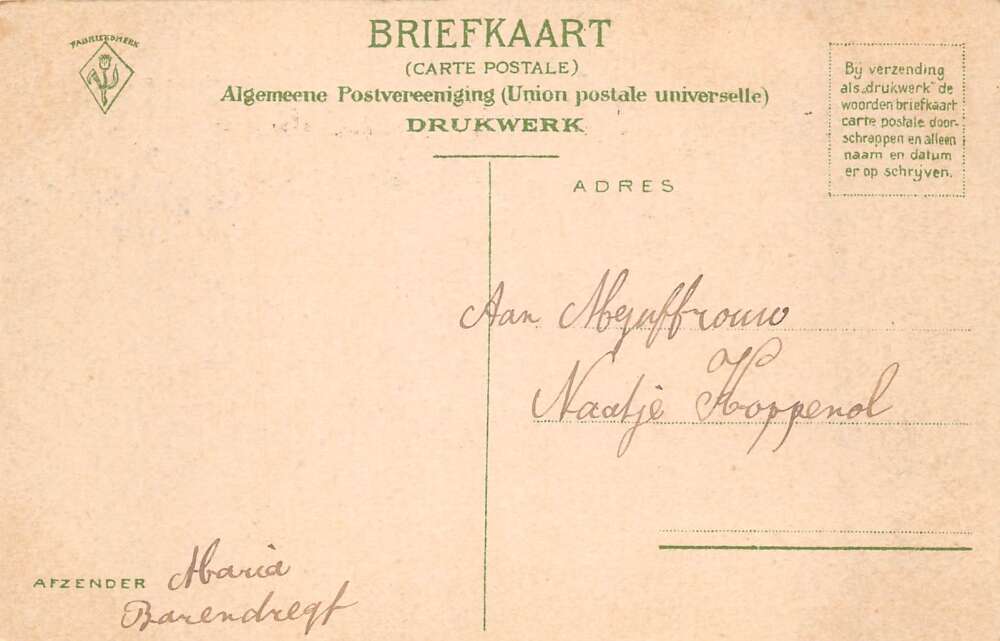 FABRIEKSMERK
BRIEFKAART
(CARTE POSTALE)
Algemeene Postvereeniging (Union postale universelle)
DRUKWERK
Bij verzending
als „drukwerk" de
woorden briefkaart
carte postale door-
schrappen en alleen
naam en datum
er op schrijven.
ADRES
Aan Mejuffrouw
Naatje Koppenol
AFZENDER Maria
Barendregt